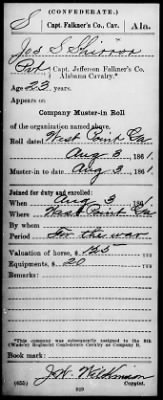 (CONFEDERATE.)
S Capt. Falkner's Co., Cav. Ala.
Jas S
Pvt, Capt. Jefferson Falkner's Co.,
Alabama Cavalry.*
Age 23 years.
Appears on
Company Muster-in Roll
of the organization named above.
Roll dated West Point Ga
Aug 3, 1861.
Muster-in to date Aug 3, 1861.
Joined for duty and enrolled:
When Aug 3, 1861.
Where West Point Ga
By whom
Period For the war
Valuation of horse, $ 125
Equipments, $ 20
Remarks:
*This company was subsequently assigned to the 8th
(Wade's) Regiment Confederate Cavalry as Company
Book mark:
J.W. Wilkinson
(655) Copyist.